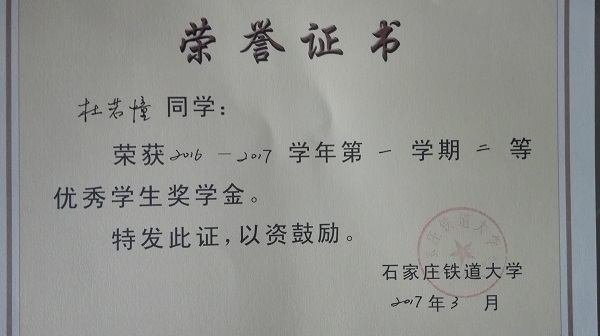 荣誉证书
杜若憧 同学：
荣获2016－2017学年第一学期二等
优秀学生奖学金。
特发此证，以资鼓励。
石家庄铁道大学
2017年3月